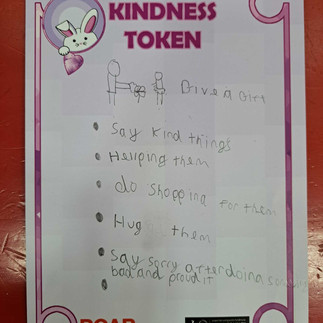 KINDNESS
TOKEN
Give A Gift
Say kind things
Hellping them
do shopping for them
Hug them
Say sorry after doing
bad and proud it
ROAR